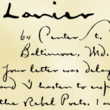 Lanier
by Center t.
Baltimore, Md.
Your letter was delay
and I hasten to say
the Rebel Poets. I